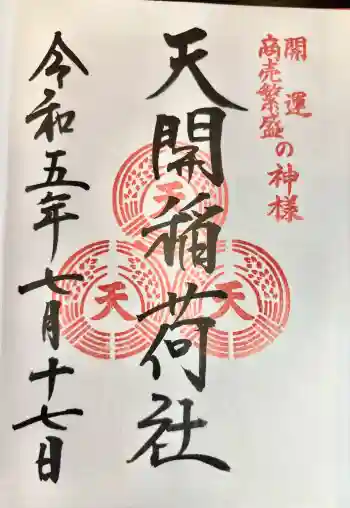 開運
商売繁盛の神様
天開稲荷社
天
天
天
令和五年七月十七日